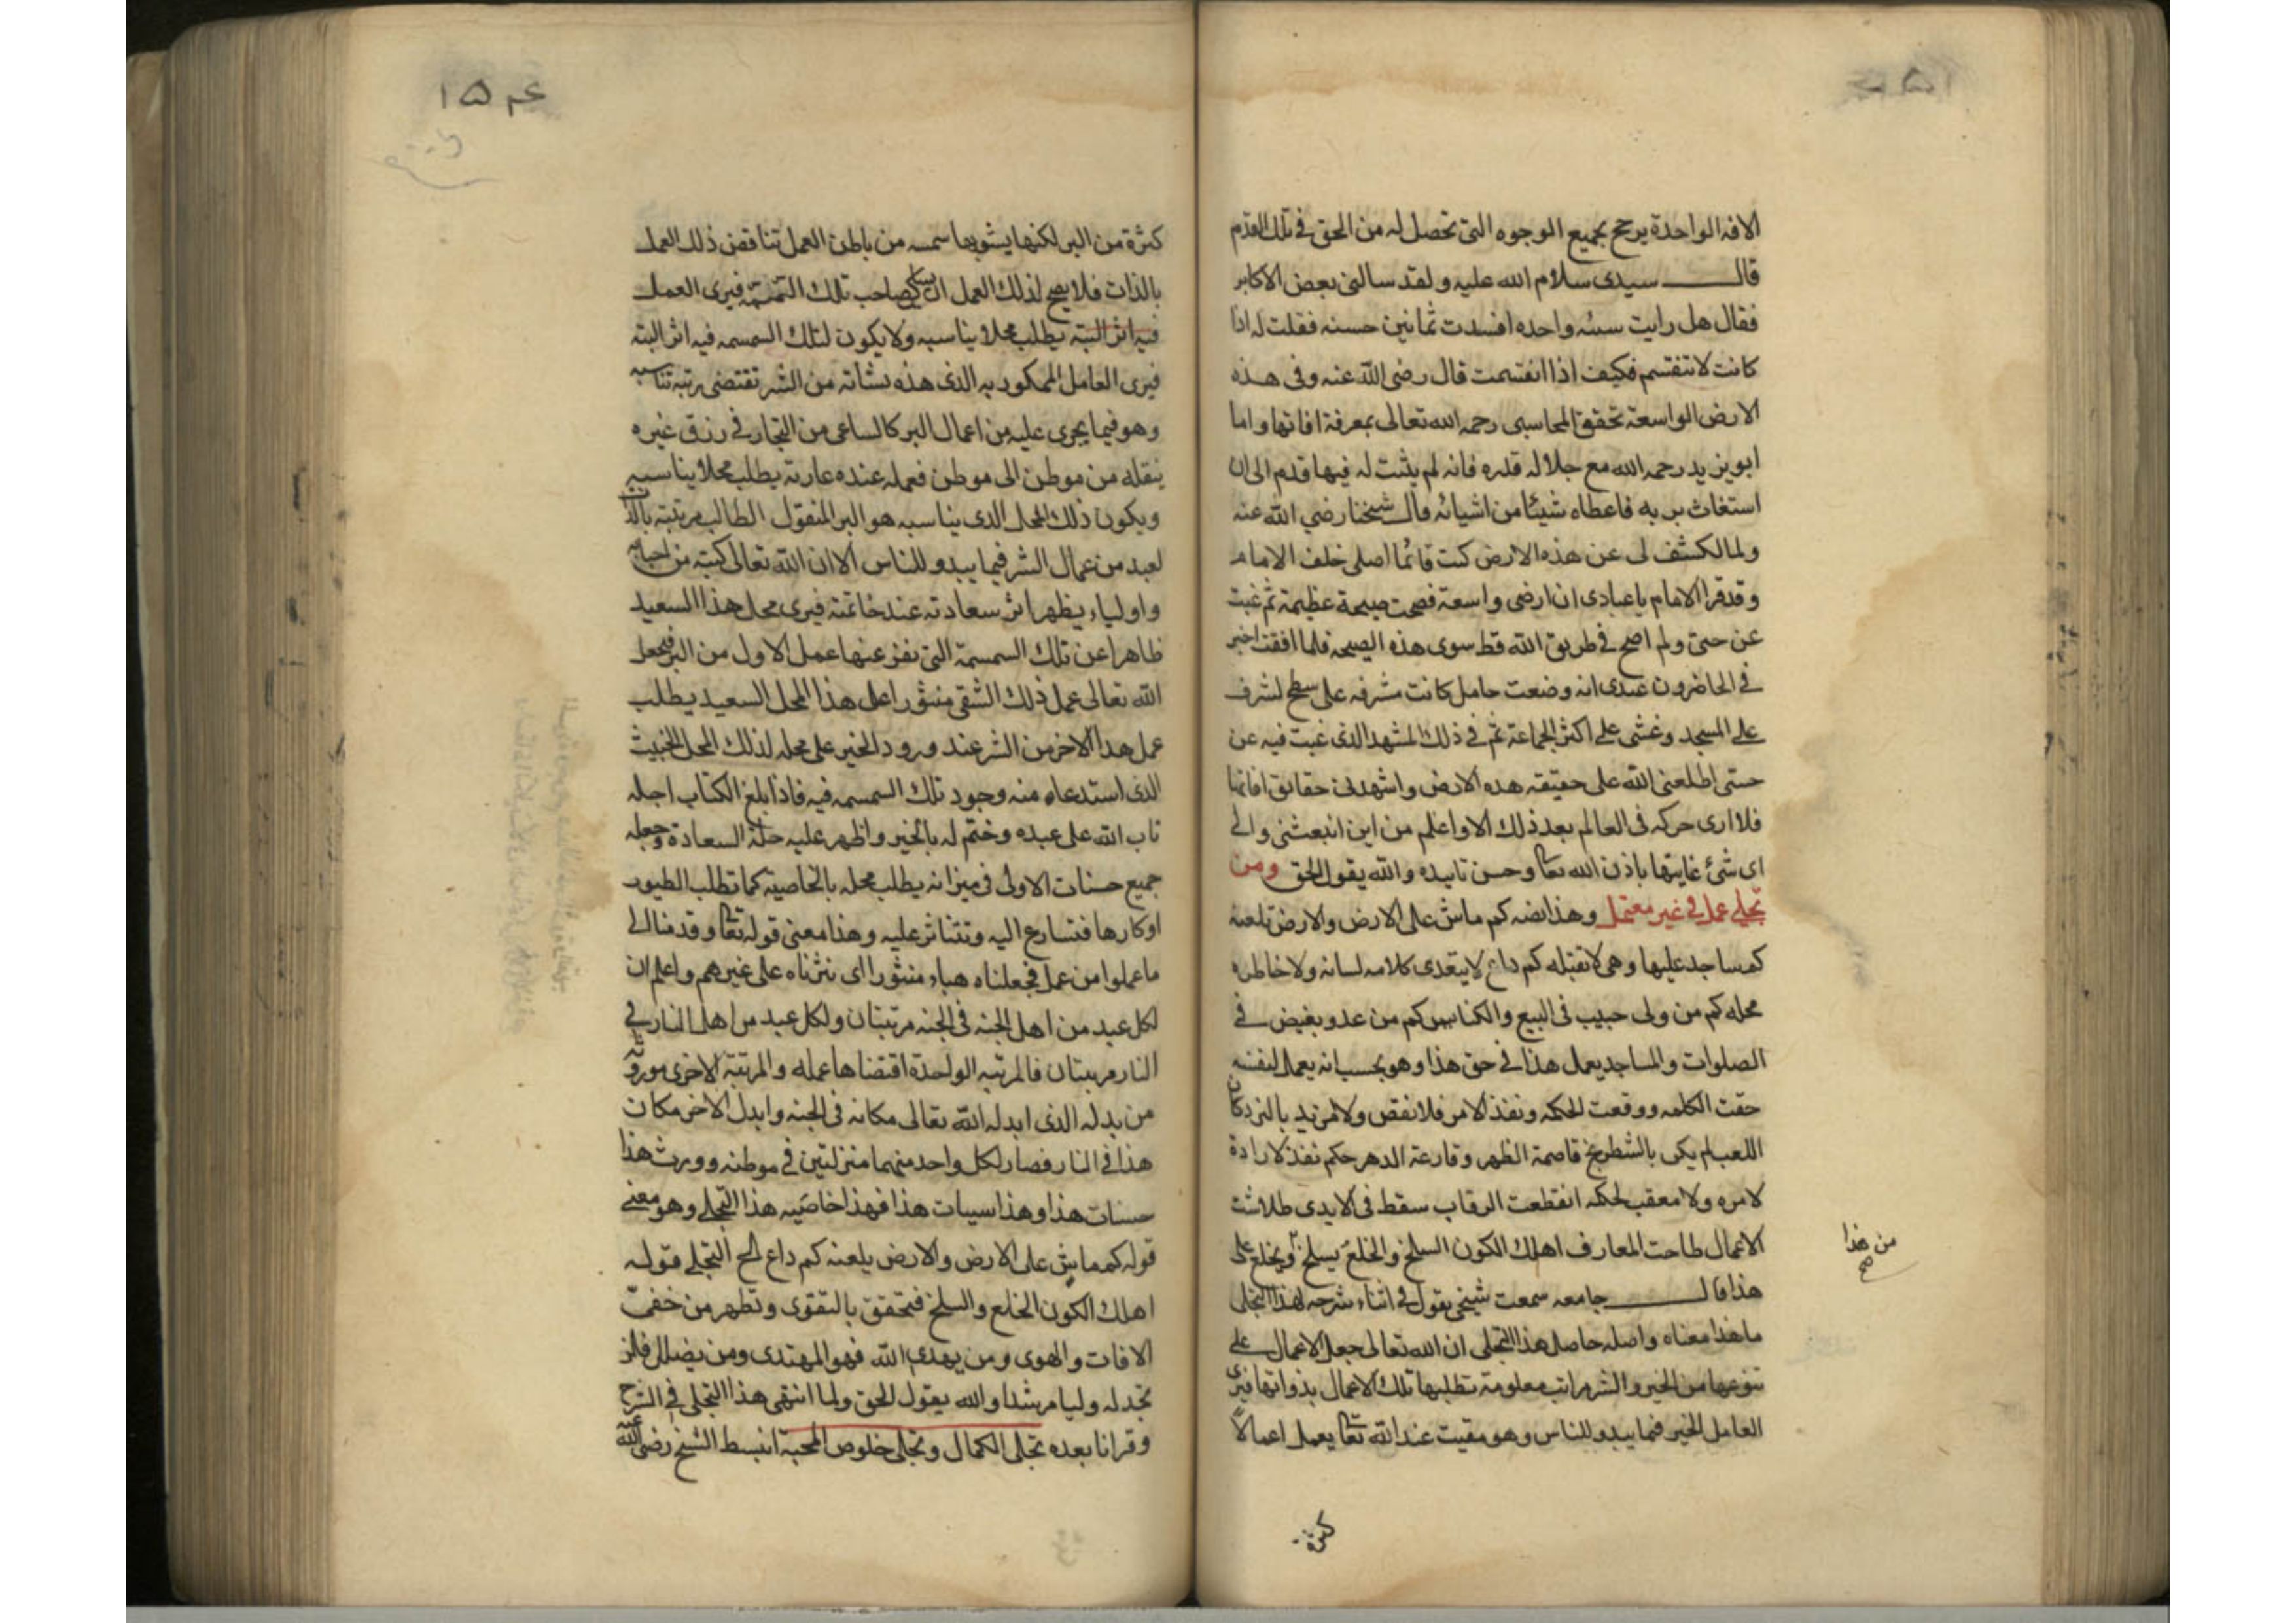 الافه الواحدة يرجح بجميع الوجوه التى تحصل له من الحق فى تلك القدم
قال سيدى سلام الله عليه ولقد سالنى بعض الاكابر
فقال هل رايت سيئه واحده افسدت ثمانين حسنه فقلت له اذا
كانت لا تنقسم فكيف اذا انقسمت قال رضى الله عنه وفى هذه
الارض الواسعة تحقق المحاسبى رحمه الله تعالى بمعرفة افاتها واما
ابو يزيد رحمه الله مع جلاله قدره فانه لم يثبت له فيها قدم الى ان
استغاث بربه فاعطاه شيئا من اشيائه قال شيخنا رضي الله عنه
ولما انكشف لى عن هذه الارض كنت قائما اصلى خلف الامام
وقد قرا الامام ياعبادى ان ارضى واسعة فصحت صيحة عظيمة ثم غبت
عن حسى ولم اصح فى طريق الله قط سوى هذه الصيحه فلما افقت اخبر
فى الحاضرون عندى انه وضعت حامل كانت مشرفه على سطح لشرف
على المسجد وغشى على اكثر الجماعة ثم فى ذلك المشهد الذى غبت فيه عن
حسى اطلعنى الله على حقيقه هذه الارض واشهدنى حقائق افاتها
فلا ارى حركه فى العالم بعد ذلك الا واعلم من اين انبعثنى والى
اى شئ غايتها باذن الله تعا وحسن تاييده والله يقول الحق ومن
تجلى عمل فى غير معتمل وهذا نصه كم ماش على الارض والارض تلعنه
كم ساجد عليها وهى لا تقبله كم داع لا يتعدى كلامه لسانه ولا خاطره
محله كم من ولى حبيب فى البيع والكنايس كم من عدو بغيض فى
الصلوات والمساجد يعمل هذا فى حق هذا وهو يحسب انه يعمل لنفسه
حقت الكلمه ووقعت الحكمه ونفذ الامر فلا نقص ولا مزيد بالنرد كان
اللعب لم يكن بالشطرنج قاصمة الظهر وقارعة الدهر حكم نفذ لا رادة
لامره ولا معقب لحكمه انقطعت الرقاب سقط فى الايدى طلاشت
الاعمال طاحت المعارف اهلك الكون السلخ والخلع يسلخ ويخلع على
من هذا
صح
هذا قال جامعه سمعت شيخى يقول فى اثناء شرحه لهذا التجلى
ما هذا معناه واصله حاصل هذا التجلى ان الله تعالى جعل الاعمال على
تنوعها من الخير والشر مراتب معلومة تطلبها تلك الاعمال بذواتها فيرى
العامل الخير فيما يبدو للناس وهو مقيت عند الله تعا يعمل اعمالا
كثرة
١٥٤
كثرة من البر لكنها يشوبها سمسمه من باطن العمل تناقض ذلك العمل
بالذات فلا يصح لذلك العمل صاحب تلك السمسمة فيرى العمل
فيه اثر البتة يطلب محلا يناسبه ولا يكون لتلك السمسمه فيه اثر البتة
فيرى العامل الممكور به الذى هذه نشاته من الشر تقتضى رتبة تناسبه
وهو فيما يجرى عليه من اعمال البر كالساعى من التجار فى رزق غيره
ينقله من موطن الى موطن فعمله عنده عارية يطلب محلا يناسبه
ويكون ذلك المحل الذى يناسبه هو البر المنقول الطالب مرتبته بالذات
لعبد من عمال الشر فيما يبدو للناس الا ان الله تعالى كتبه من احبابه
واولياءه يظهر اثر سعادته عند خاتمته فيرى محل هذا السعيد
ظاهرا عن تلك السمسمة التى نفر عنها عمل الاول من البر فيجعل
الله تعالى عمل ذلك الشقى منثورا على هذا المحل السعيد يطلب
عمل هذا الاخر من الشر عند ورود الخير على محله لذلك المحل الخبيث
الذى استدعاه منه وجود تلك السمسمه فيه فاذا بلغ الكتاب اجله
تاب الله على عبده وختم له بالخير واظهر عليه حلة السعادة وجعل
جميع حسنات الاولى فى ميزانه يطلب محله بالخاصية كما تطلب الطيور
اوكارها فتسارع اليه وتتناثر عليه وهذا معنى قوله تعا وقدمنا الى
ما عملوا من عمل فجعلناه هباء منثورا اى نثرناه على غيرهم واعلم ان
لكل عبد من اهل الجنه فى الجنه مرتبتان ولكل عبد من اهل النار فى
النار مرتبتان فالمرتبه الواحدة اقتضاها عمله والمرتبة الاخرى موروثة
من بدله الذى ابدله الله تعالى مكانه فى الجنه وابدل الاخر مكان
هذا فى النار فصار لكل واحد منهما منزلتين فى موطنه وورث هذا
حسنات هذا وهذا سيبات هذا فهذا خاصيه هذا التجلى وهو معنى
قوله كم ماش على الارض والارض يلعنه كم داع الخ التجلى قوله
اهلك الكون الخلع والسلخ فتحقق بالتقوى وتطهر من خفى
الافات والهوى ومن يهدى الله فهو المهتدى ومن يضلل فلن
تجد له وليا مرشدا والله يقول الحق ولما انتهى هذا التجلى فى الشرح
وقرانا بعده تجلى الكمال وتجلى خلوص المحبة انبسط الشيخ رضى الله عنه